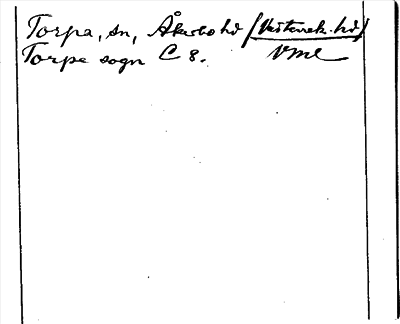 Torpa, sn, Åkerbo hd (Västerrek. hd)
Torpe sogn C 8. Vml